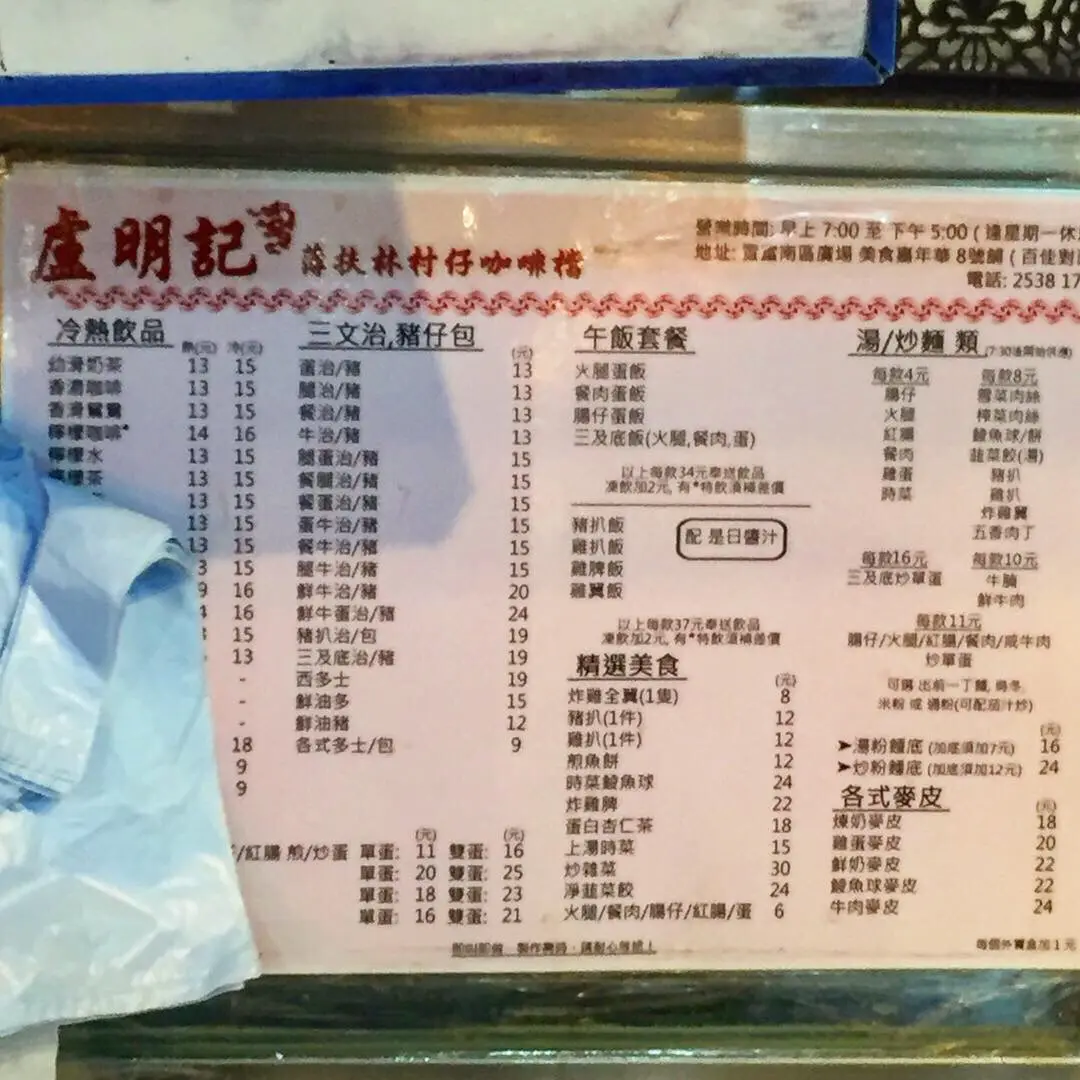 盧明記 薄扶林村仔咖啡檔
營業時間: 早上 7:00 至 下午 5:00 ( 逢星期一休
地址: 置富南區廣場 美食嘉年華 8號舖 ( 百佳對
電話: 2538 17
冷熱飲品 熱(元) 冷(元)
幼滑奶茶 13 15
香濃咖啡 13 15
香滑鴛鴦 13 15
檸檬咖啡* 14 16
檸檬水 13 15
檸檬茶 13 15
13 15
13 15
13 15
3 15
9 16
4 16
15
13
-
-
-
18
9
9
(元) (元)
/紅腸 煎/炒蛋 單蛋: 11 雙蛋: 16
單蛋: 20 雙蛋: 25
單蛋: 18 雙蛋: 23
單蛋: 16 雙蛋: 21
三文治,豬仔包 (元)
蛋治/豬 13
腿治/豬 13
餐治/豬 13
牛治/豬 13
腿蛋治/豬 15
餐腿治/豬 15
餐蛋治/豬 15
蛋牛治/豬 15
餐牛治/豬 15
腿牛治/豬 15
鮮牛治/豬 20
鮮牛蛋治/豬 24
豬扒治/包 19
三及底治/豬 19
西多士 19
鮮油多 15
鮮油豬 12
各式多士/包 9
午飯套餐
火腿蛋飯
餐肉蛋飯
腸仔蛋飯
三及底飯(火腿,餐肉,蛋)
以上每款34元奉送飲品
凍飲加2元, 有*特飲須補差價
豬扒飯
雞扒飯
雞脾飯
雞翼飯
配 是日醬汁
以上每款37元奉送飲品
凍飲加2元, 有*特飲須補差價
精選美食 (元)
炸雞全翼(1隻) 8
豬扒(1件) 12
雞扒(1件) 12
煎魚餅 12
時菜鯪魚球 24
炸雞脾 22
蛋白杏仁茶 18
上湯時菜 15
炒雜菜 30
淨韮菜餃 24
火腿/餐肉/腸仔/紅腸/蛋 6
湯/炒麵 類 (7:30後開始供應)
每款4元
腸仔
火腿
紅腸
餐肉
雞蛋
時菜
每款8元
雪菜肉絲
榨菜肉絲
鯪魚球/餅
韮菜餃(湯)
豬扒
雞扒
炸雞翼
五香肉丁
每款16元
三及底炒單蛋
每款10元
牛腩
鮮牛肉
每款11元
腸仔/火腿/紅腸/餐肉/咸牛肉
炒單蛋
可選 出前一丁麵, 烏冬,
米粉 或 通粉(可配茄汁炒)
(元)
➤湯粉麵底 (加底須加7元) 16
➤炒粉麵底 (加底須加12元) 24
各式麥皮 (元)
煉奶麥皮 18
雞蛋麥皮 20
鮮奶麥皮 22
鯪魚球麥皮 22
牛肉麥皮 24
即叫即做 製作需時，請耐心等候！
每個外賣盒加 1 元